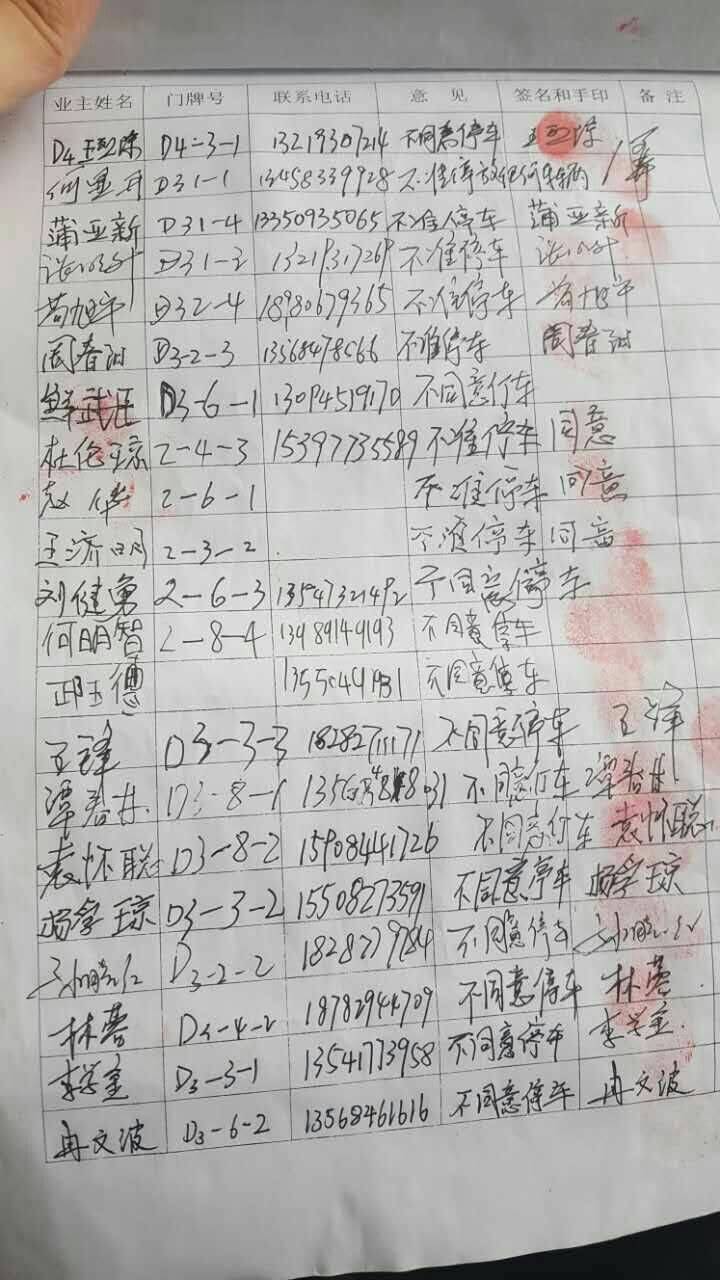 业主姓名 门牌号 联系电话 意见 签名和手印 备注
D4 王 D4-3-1 13219307214 不同意停车 王
何 D31-1 13458339928 不准停放任何车辆
蒲亚新 D31-4 13350935065 不准停车 蒲亚新
D31-2 13219317269 不准停车
苟旭平 D32-4 18980679365 不准停车 苟旭平
周春 D3-2-3 13568478666 不准停车 周春
鲜武 D3-6-1 13094519170 不同意停车
杜伦琼 2-4-3 15397735589 不准停车 同意
赵华 2-6-1 不准停车 同意
王济明 2-3-2 不准停车 同意
刘健勇 2-6-3 13547321492 不同意停车
何明智 2-8-4 13989149193 不同意停车
邱玉德 不同意停车
王锋 D3-3-3 18282711171 不同意停车 王锋
谭春 D3-8-1 不同意停车 谭春
袁怀聪 D3-8-2 15908441726 不同意停车 袁怀聪
杨 琼 D3-3-2 15508273591 不同意停车 杨 琼
D3-2-2 不同意停车
林蓉 18782944709 不同意停车 林蓉
李 D3-3-1 13541773958 不同意停车 李
冉文波 D3-6-2 13568461616 不同意停车 冉文波